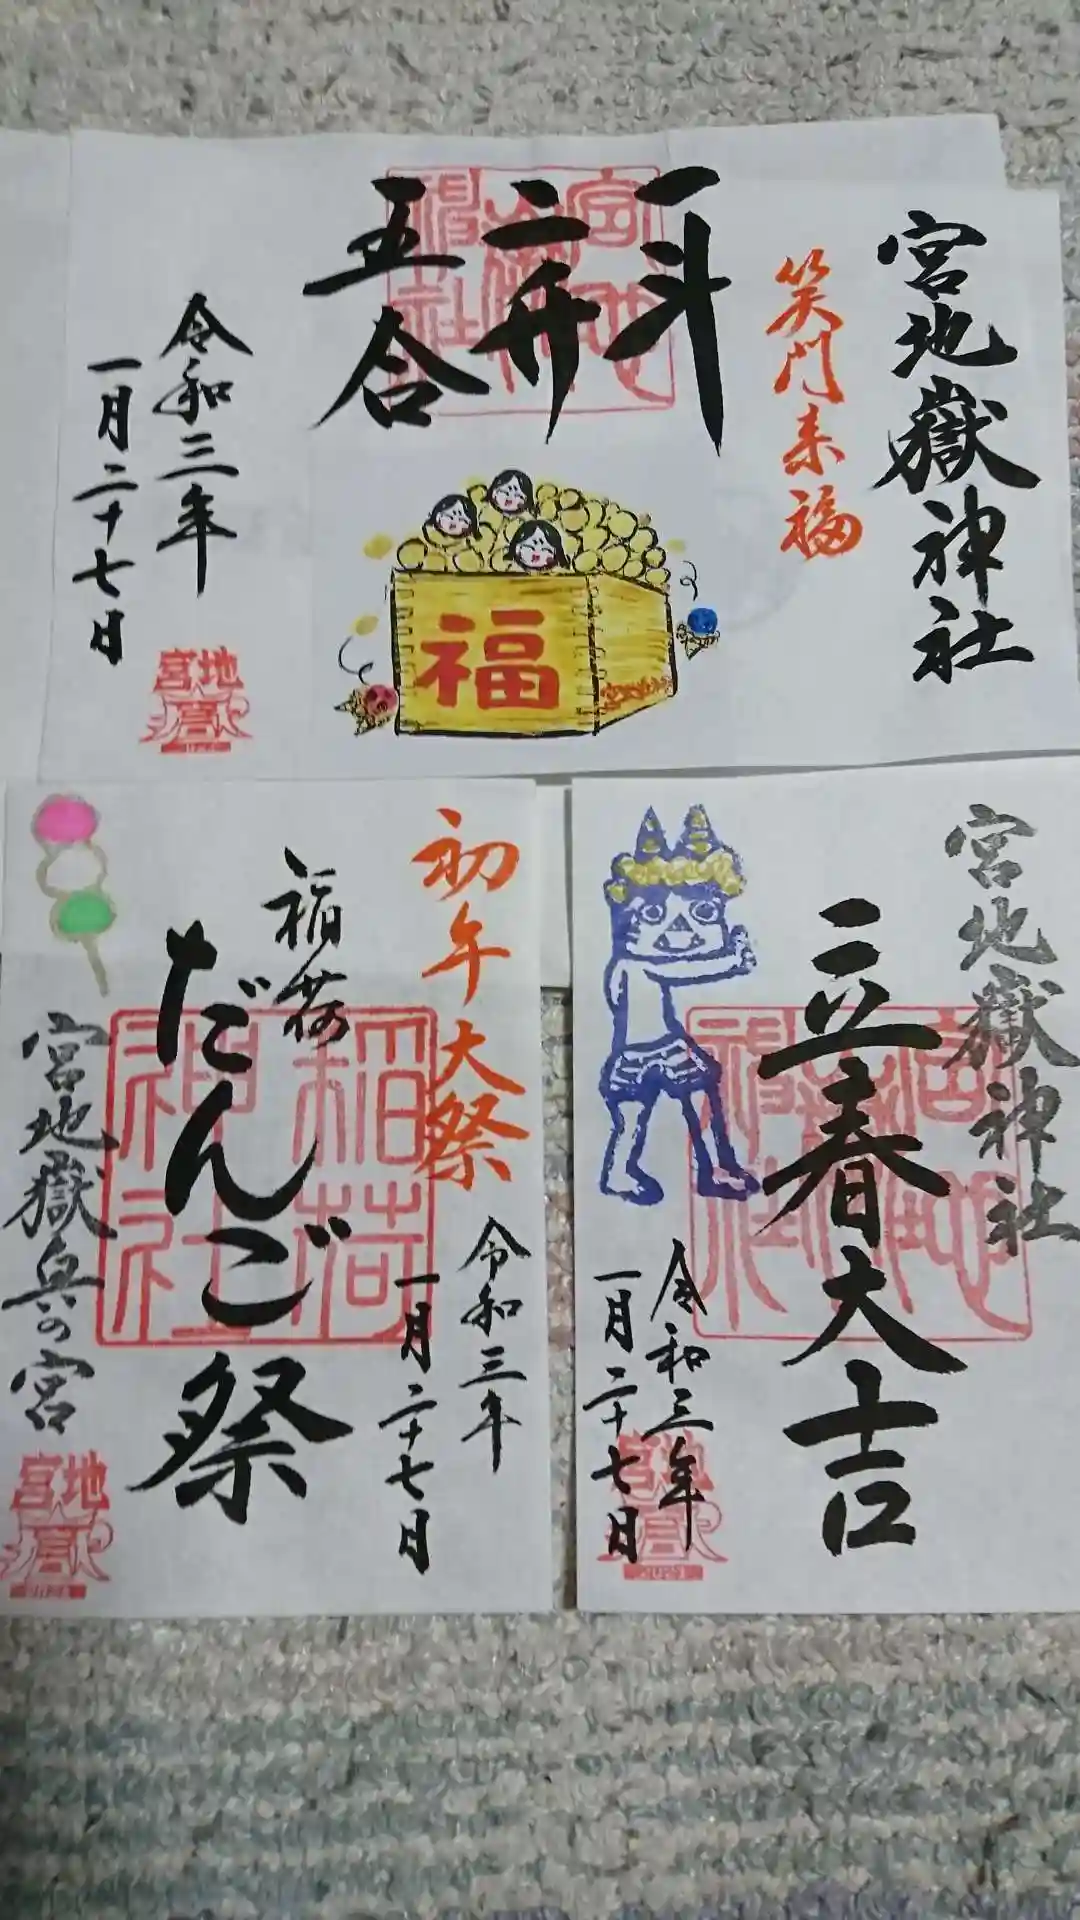 宮地嶽神社
笑門来福
一斗
二升
五合
福
令和三年
一月二十七日
宮地
初午大祭
令和三年
一月二十七日
稲荷
だんご祭
稲荷
神社
宮地嶽
宮
宮地
宮地嶽神社
立春大吉
令和三年
一月二十七日